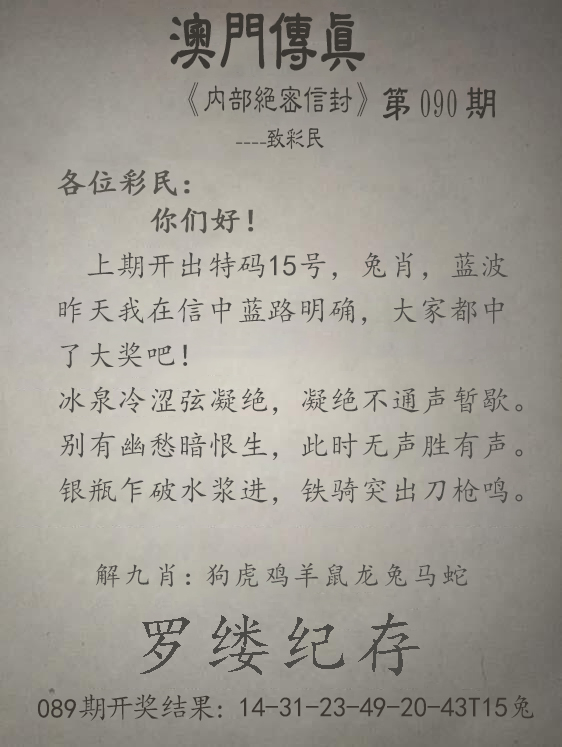 澳門傳眞
《内部絕密信封》第090期
----致彩民
各位彩民：
你们好！
上期开出特码15号，兔肖，蓝波
昨天我在信中蓝路明确，大家都中
了大奖吧！
冰泉冷涩弦凝绝，凝绝不通声暂歇。
别有幽愁暗恨生，此时无声胜有声。
银瓶乍破水浆迸，铁骑突出刀枪鸣。
解九肖：狗虎鸡羊鼠龙兔马蛇
罗缕纪存
089期开奖结果：14-31-23-49-20-43T15兔